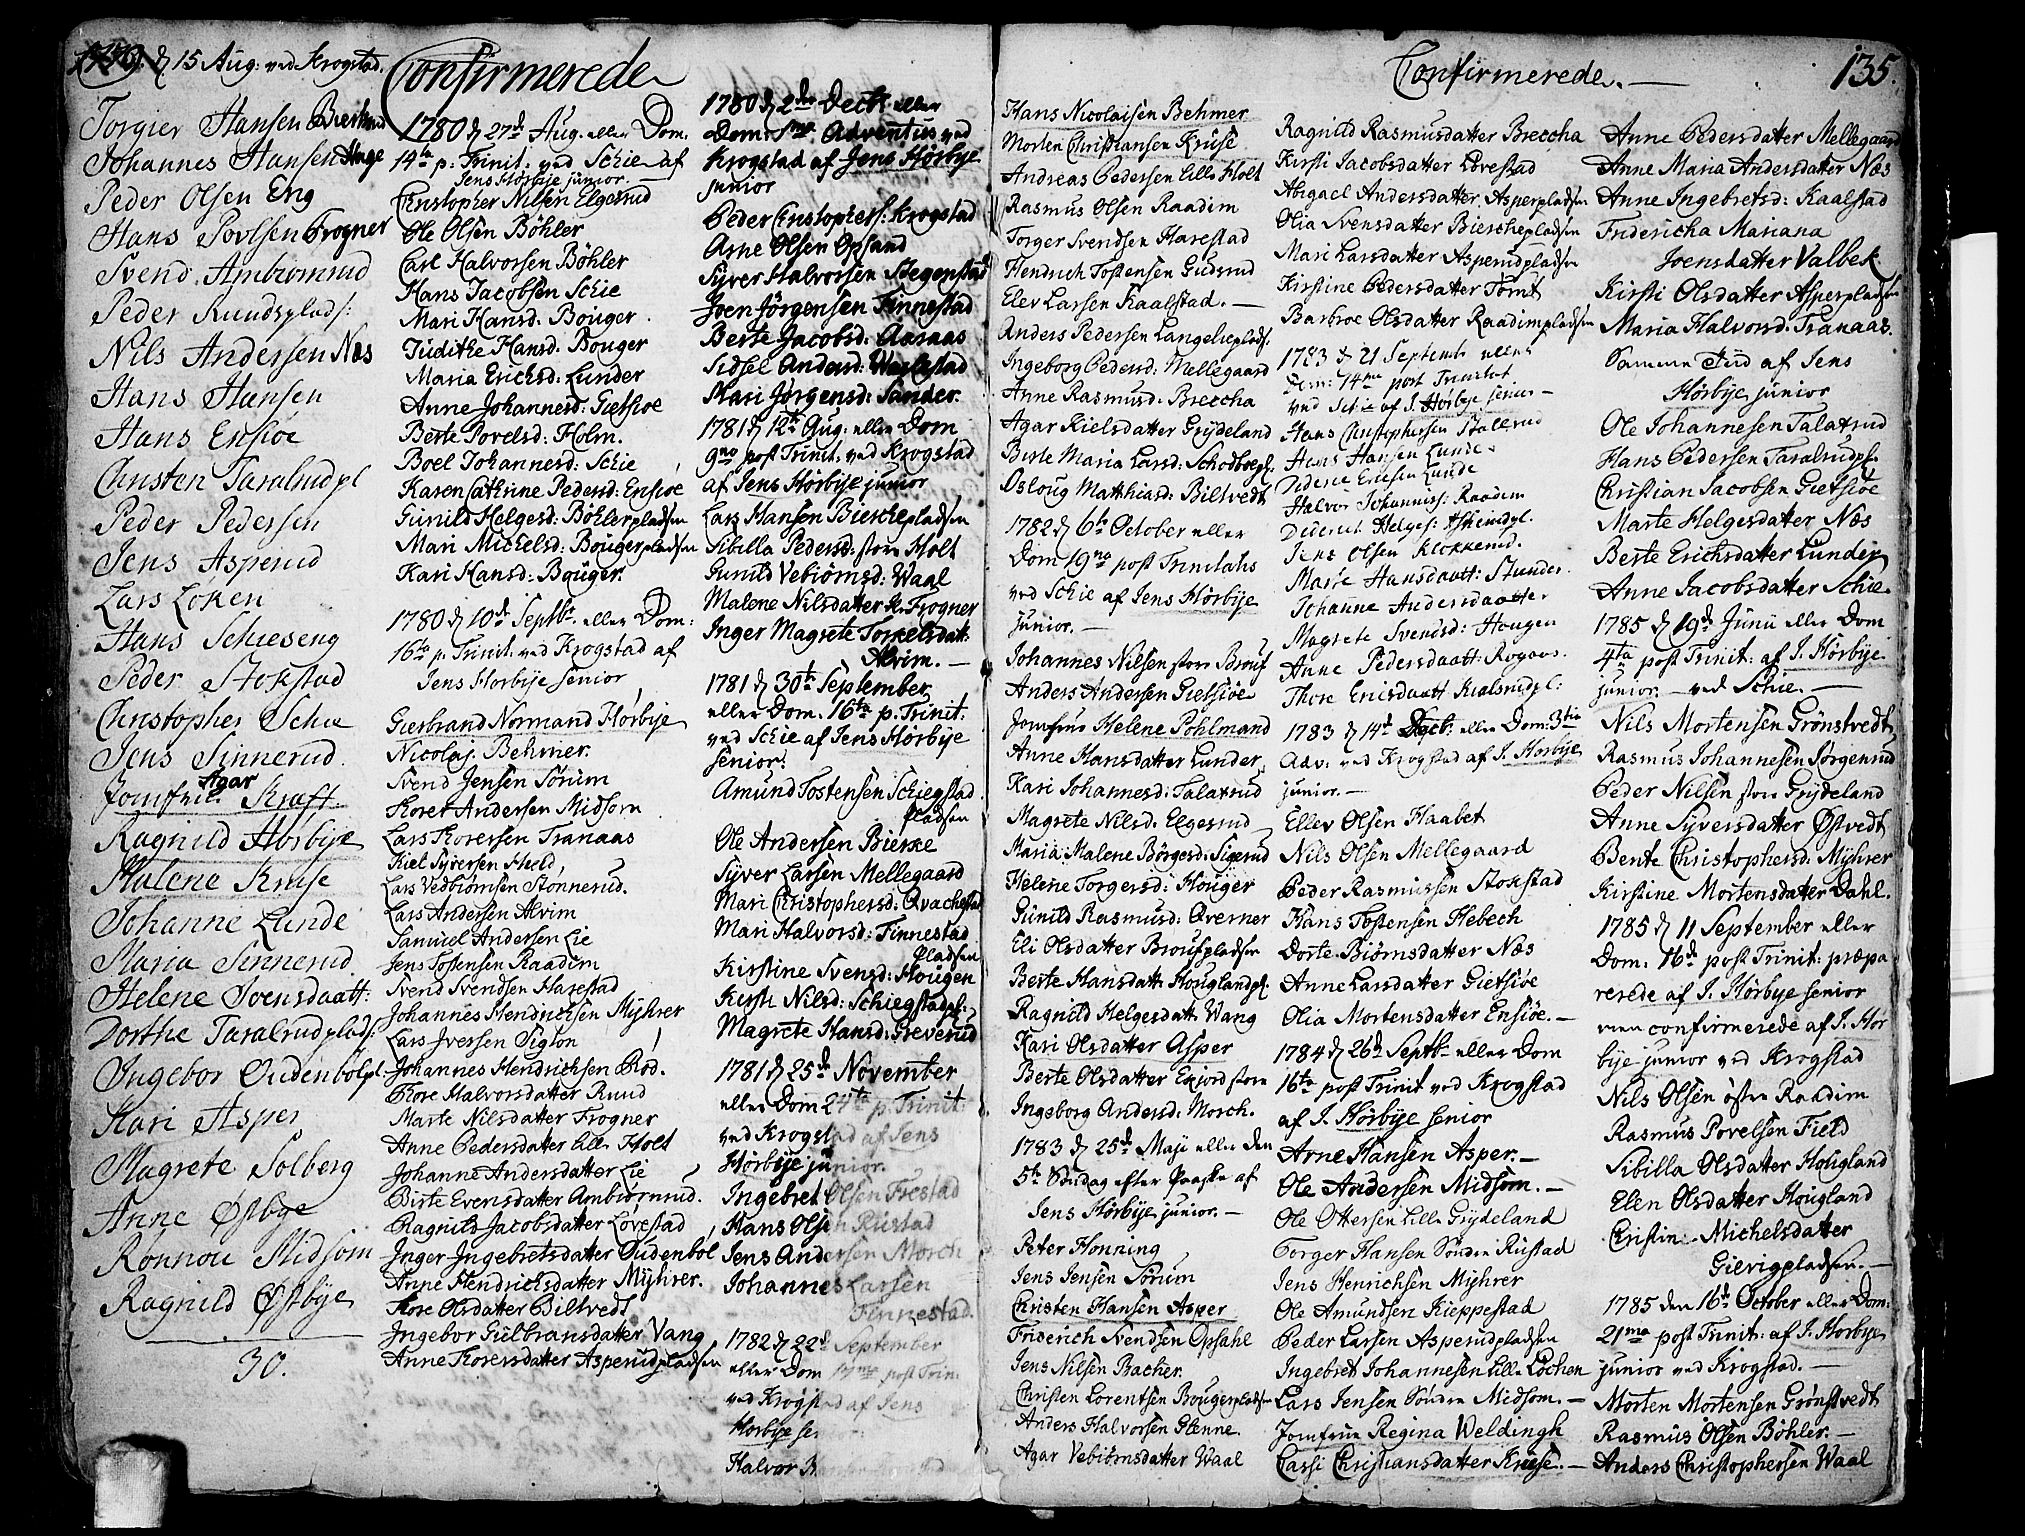 1779. d 15 Aug: ved Krogstad.
Confirmerede
Torgier Hansen
Johannes Hansen Hage
Peder Olsen Eng
Hans Povlsen Frogner
Svend Ambiørnrud
Peder Ruudsplads:
Nils Andersen Næs
Hans Hansen
Hans Ensiöe
Christen Taralrudpl
Peder Pedersen
Jens Asperud
Lars Löken
Hans Schieseng
Peder Stokstad
Christopher Schie
Jens Sinnerud.
Jomfrue Agar Kraft
Ragnild Hörbye
Malene Kruse
Johanne Lunde
Maria Sinnerud
Helene Svensdaatt:
Dorthe Taralrudplads:
Ingebor Oudenbölpl
Kari Asper
Magrete Solberg
Anne Østbye
Rönnou Midsom
Ragnild Østbye
30.
1780 d 27d Aug. eller Dom.
14ta p. Trinit. ved Schie af
Jens Hörbye junior.
Christopher Nilsen Elgesrud
Ole Olsen Böhler
Carl Halvorsen Böhler
Hans Jacobsen Schie
Mari Hansd: Bouger.
Judithe Hansd: Bouger
Maria Ericksd: Lunder
Anne Johannesd: Gietsiøe
Berte Povelsd: Holm.
Boel Johannesd: Schie
Karen Cathrine Pedersd: Ensiøe
Gunild Helgesd: Böhlerpladsen
Mari Michelsd: Bougerpladsen
Kari Hansd: Bouger.
1780 d 10d Septbr. eller Dom:
16ta p. Trinit. ved Krogstad af
Jens Horbye senior
Gierbrand Normand Hörbye
Nicolaj Behmer.
Svend Jensen Sörum
Kore Andersen Midsom
Lars Koresen Tranaas
Kiel Syversen Hield
Lars Vedbiömsen Stonnerud.
Lars Andersen Alvim
Samuel Andersen Lie
Jens Tostensen Raadim
Svend Svendsen Harestad
Johannes Hendrichsen Myhrer
Lars Iversen Siglon
Johannes Hendrichsen Röd.
Tore Halvorsdatter Ruud
Marte Nilsdatter Frogner
Anne Pedersdatter lille Holt
Johanne Andersdatter Lie
Birte Evensdatter Ambiörnrud.
Ragnild Jacobsdatter Lövestad
Inger Ingebretsdatter Oudenböl
Anne Hendrichsdatter Myhrer.
Kore Olsdatter Biltvedt
Ingebor Gulbransdatter Vang
Anne Koresdatter Asperudpladsen
1780 d 2den Decbr eller
Dom: 1ma Adventus ved
Krogstad af Jens Hörbye
junior
Peder Christophers: Krogstad
Arne Olsen Opsand
Syver Halvorsen Stegenstad
Joen Jörgensen Finnestad
Berte Jacobsd: Aaraas
Sidsel Andersd: Warlestad
Mari Jörgensd: Sander.
1781 d 12te Aug: eller Dom
9no post Trinit. ved Krogstad
af Jens Hörbye junior
Lars Hansen Bierchepladsen
Sibilla Pedersd: store Holt
Gunild Vebiörnsd: Waal
Malene Nilsdatter k. Frogner
Inger Magrete Torkelsdatt:
Alvim.
1781 d 30te September
eller Dom. 16ta p. Trinit:
ved Schie af Jens Hörbye
senior.
Amund Tostensen Schiegstad
pladsen
Ole Andersen Bierke
Syver Larsen Mellegaard
Mari Christophersd: Qvachestad
Mari Halvorsd: Finnestad
Pladsen
Kirstine Svensd: Hougen
Kirsti Nilsd: Schiegstadpl:
Magrete Hansd: Greverud
1781 d 25de November
eller Dom 24ta p. Trinit:
ved Krogstad af Jens
Hörbye junior.
Ingebret Olsen Frestad
Hans Olsen Rustad
Jens Andersen Morch
Johannes Larsen
Finnestad.
1782 d 22d September
eller Dom 17ma post Trin.
ved Krogstad af Jens
Horbye se
Halvor
Confirmerede.
135.
Hans Nicolaisen Behmer
Morten Christiansen Kruse
Andreas Pedersen lille Holt
Rasmus Olsen Raadim
Torger Svendsen Harestad
Hendrich Tostensen Gudsrud
Elev Larsen Kaalstad.
Anders Pedersen Langelieplads.
Ingeborg Pedersd: Mellegaard
Anne Rasmusd: Breccha
Agar Kielsdatter Grydeland
Birte Maria Larsd: Schodboepl:
Osloug Matthiasd: Biltvedt
1782 d 6te October eller
Dom 19na post Trinitatis
ved Schie af Jens Hörbye
junior.
Johannes Nilsen store Brous
Anders Andersen Gietsiöe
Jomfrue Helene Pohlmand
Anne Hansdatter Lunder
Kari Johannesd: Talaxrud
Magrete Nilsd. Elgesrud
Maria Malene Börgesd: Sigerud
Helene Torgersd: Houger
Gunild Rasmusd: Qverner
Eli Olsdatter Brouspladsen
Berte Hansdatt: Houglandpl:
Ragnild Helgesdatt Wang
Kari Olsdatter Asper
Berte Olsdatter Exjord store
Ingeborg Andersd: Morch.
1783 d 25de Maji eller den
5te Söndag efter Paaske af
Jens Hörbye junior.
Peter Honning
Jens Jensen Sörum
Christen Hansen Asper
Friderich Svendsen Opsahl
Jens Nilsen Bacher.
Christen Lorentsen Bougerpladsen
Anders Halvorsen Glenne.
Agar Vebiörnsdatter Waal
Ragnild Rasmusdatter Breccha
Kirsti Jacobsdatter Lövestad
Abigael Andersdatter Asperpladsen
Olia Svensdatter Bierchepladsen
Mari Larsdatter Asperudpladsen
Kirstine Pedersdatter Tomt
Barbroe Olsdatter Raadimpladsen
1783 d 21 Septemb. eller
Dom: 14me post Trinitat
ved Schie af J. Hörbye senior
Hans Christophersen Stallerud
Hans Hansen Lunde.
Dideric Ericsen Lunde
Halvor Johanness: Raadem
Diderich Helges: Askeimpl.
Jens Olsen Klokkerud.
Marie Hansdaatt: Stunder.
Johanne Andersdaatter
Magrete Svendsd: Hougen
Anne Pedersdaatt: Rogaas.
Thore Ericsdaatt Rialsrudpl:
1783 d 14d Decbr. eller Dom: 3tia
Adv: ved Krogstad af J. Horbye
junior.
Ellev Olsen Haabet
Nils Olsen Mellegaard
Peder Rasmussen Stokstad
Hans Tostensen Hebech
Dorte Biörnsdatter Næs
Anne Larsdatter Gietsiöe
Olia Mortensdatter Ensiöe.
1784 d 26de Septbr eller Dom
16ta post Trinit ved Krogstad
af J. Hörbye senior
Arne Hansen Asper.
Ole Andersen Midsom.
Ole Ottersen lille Grydeland
Torger Hansen Sönder Rustad
Jens Henrichsen Myhrer
Ole Amundsen Kieppestad
Peder Larsen Asperudpladsen
Ingebret Johannesen lille Löchen
Lars Jensen Sönder Midsom.
Jomfrue Regina Weldingh
Cassi Christiansdatter Kruse.
Anne Pedersdatter Mellegaard
Anne Maria Andersdatter Næs
Anne Ingebretsd: Kaalstad
Fridericha Mariana
Joensdatter Valbek
Kirsti Olsdatter Asperpladsen
Maria Halvorsd: Tranaas.
Samme Tiid af Jens
Hörbye junior
Ole Johannesen Talaxrud
Hans Pedersen Taralrudpl:
Christian Jacobsen Gietsiöe
Marte Helgesdatter Næs
Berte Erichsdatter Lunder
Anne Jacobsdatter Schie.
1785 d 19d Junii eller Dom
4ta post Trinit: af J. Hörbye
junior. ved Schie.
Nils Mortensen Grönstvedt
Rasmus Johannesen Sörgenrud
Peder Nilsen store Grydeland
Anne Syversdatter Østvedt
Bente Christophersd: Myhrer
Kirstine Mortensdatter Dahl.
1785 d 11 September eller
Dom. 16de post Trinit: præpa
rerede af J. Hörbye senior
men confirmerede af J. Hör
bye junior ved Krogstad
Nils Olsen östre Raadim
Rasmus Povelsen Field
Sibilla Olsdatter Hougland
Elen Olsdatter Hougland
Christine Michelsdatter
Gievigpladsen.
1785 den 16de October eller Dom:
21ma post Trinit: af J. Horbye
junior ved Krogstad.
Morten Mortensen Grönstvedt
Rasmus Olsen Böhler.
Anders Christophersen Waal